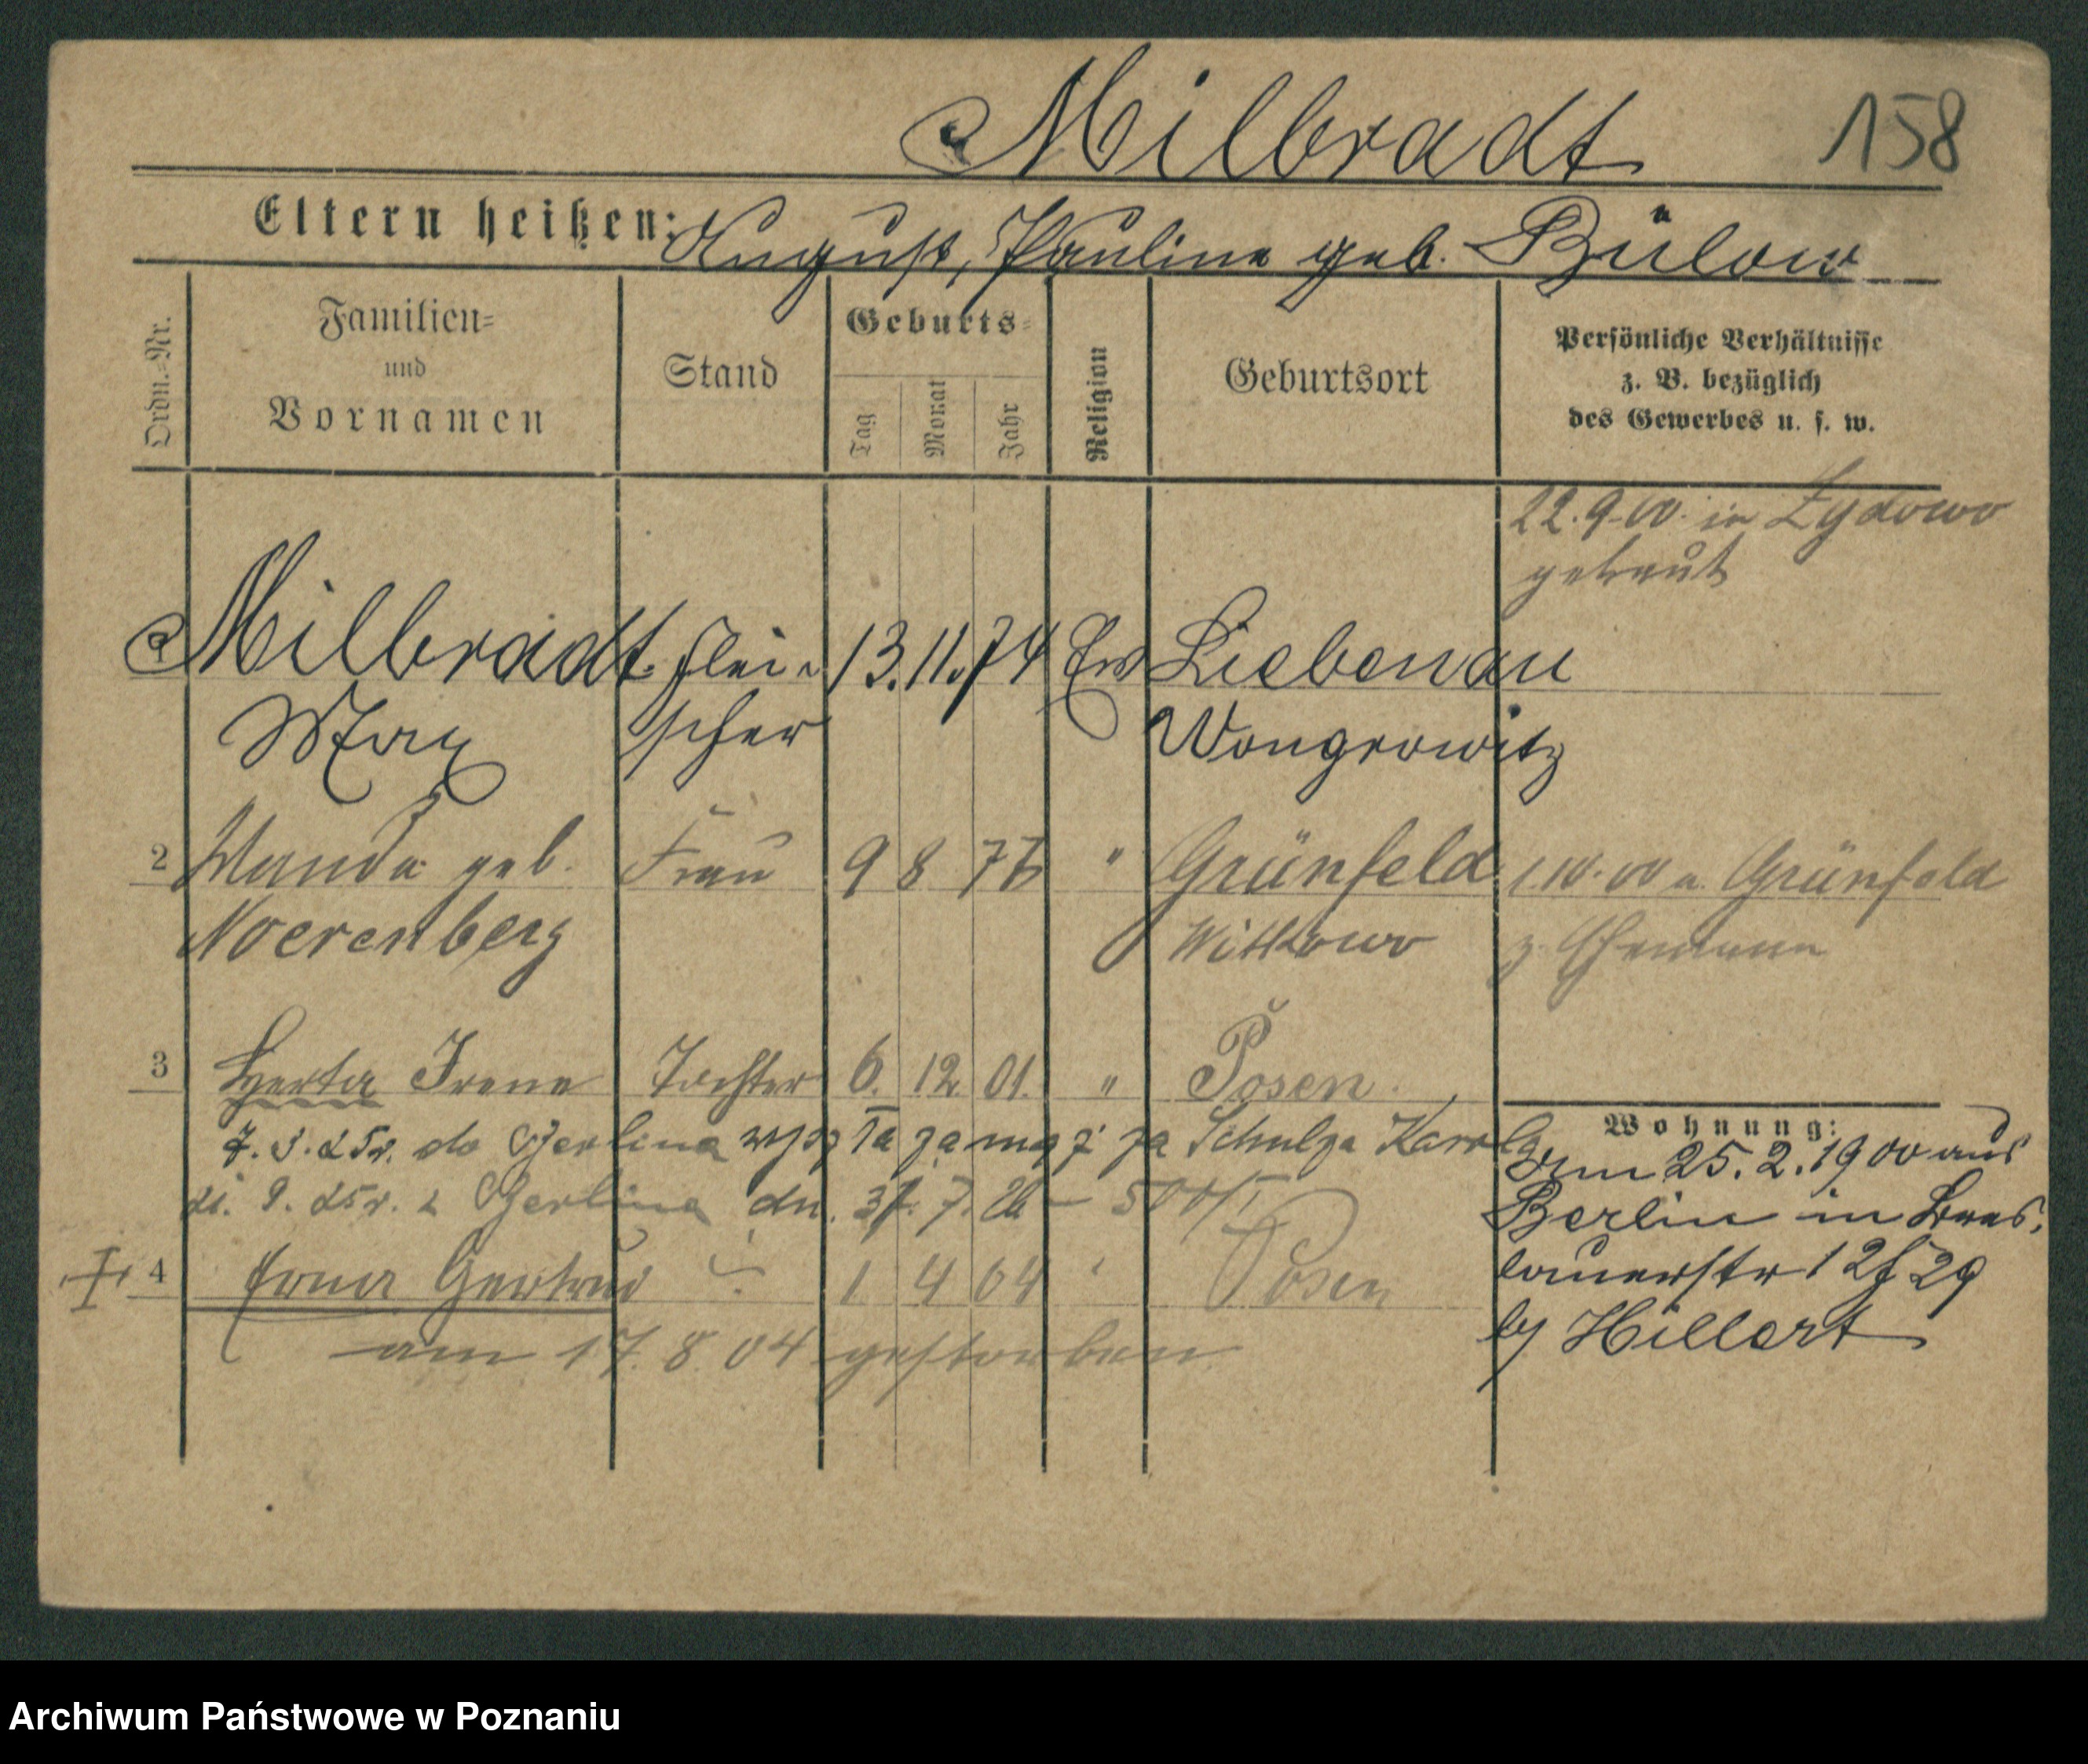 Milbradt 158
Eltern heißen: August, Pauline geb. Bülow
Ordn.-Nr. Familien- und Vornamen Stand Geburts- Tag Monat Jahr Religion Geburtsort Persönliche Verhältnisse z. B. bezüglich des Gewerbes u. s. w.
22.9.00. in Zydowo
getraut
Milbradt Flei- 13. 11. 74 Ev Liebenau
Max scher Wongrowitz
2 Wanda geb. Frau 9 8 76 " Grünfeld 1.10.00 a. Grünfeld
Noerenberg Wittkowo z. Ehemann
3 Herta Irene Tochter 6. 12. 01. " Posen.
Wohnung:
do Berlina wyj za mąż za Schulza Karola
z Berlina dn. 7. 26
Am 25.2.1900 aus
Berlin in Bres-
lauerstr 12 29
by Hillert
4 Erna Gertrud 1 4 04 " Posen
am 17. 8. 04 gestorben
Archiwum Państwowe w Poznaniu